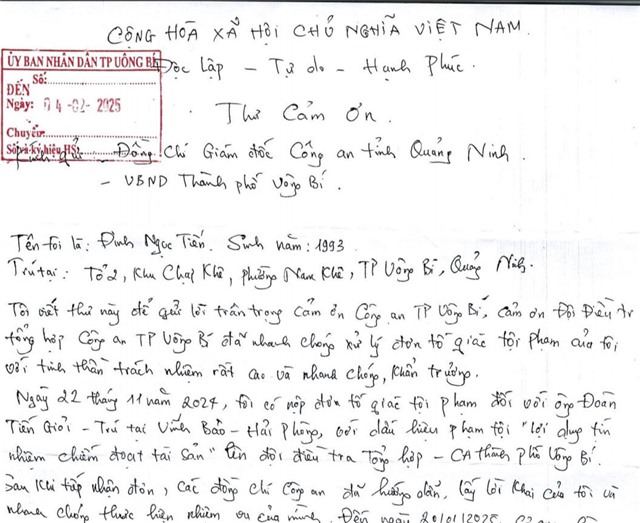 CỘNG HÒA XÃ HỘI CHỦ NGHĨA VIỆT NAM.
Độc lập - Tự do - Hạnh Phúc.
ỦY BAN NHÂN DÂN TP UÔNG BÍ
Số:
ĐẾN
Ngày: 04-02-2025
Chuyển:
Số và ký hiệu HS:
Thư Cảm Ơn.
Kính gửi: - Đồng Chí Giám đốc Công an tỉnh Quảng Ninh.
- UBND Thành phố Uông Bí.
Tên tôi là: Đinh Ngọc Tiến. Sinh năm: 1993
Trú tại: Tổ 2, Khu Chạp Khê, Phường Nam Khê, TP Uông Bí, Quảng Ninh.
Tôi viết thư này để gửi lời trân trọng cảm ơn Công an TP Uông Bí, cảm ơn Đội Điều tr
tổng hợp Công an TP Uông Bí đã nhanh chóng xử lý đơn tố giác tội phạm của tôi
với tinh thần trách nhiệm rất cao và nhanh chóng, khẩn trương.
Ngày 22 tháng 11 năm 2024, tôi có nộp đơn tố giác tội phạm đối với ông Đoàn
Tiến Giỏi - Trú tại Vĩnh Bảo - Hải Phòng, với dấu hiệu phạm tội "lợi dụng tín
nhiệm chiếm đoạt tài sản" lên đội điều tra Tổng hợp - CA thành phố Uông Bí.
Sau khi tiếp nhận đơn, các đồng chí Công an đã hướng dẫn, lấy lời khai của tôi và
nhanh chóng thực hiện nhiệm vụ của mình. Đến ngày 20/01/2025